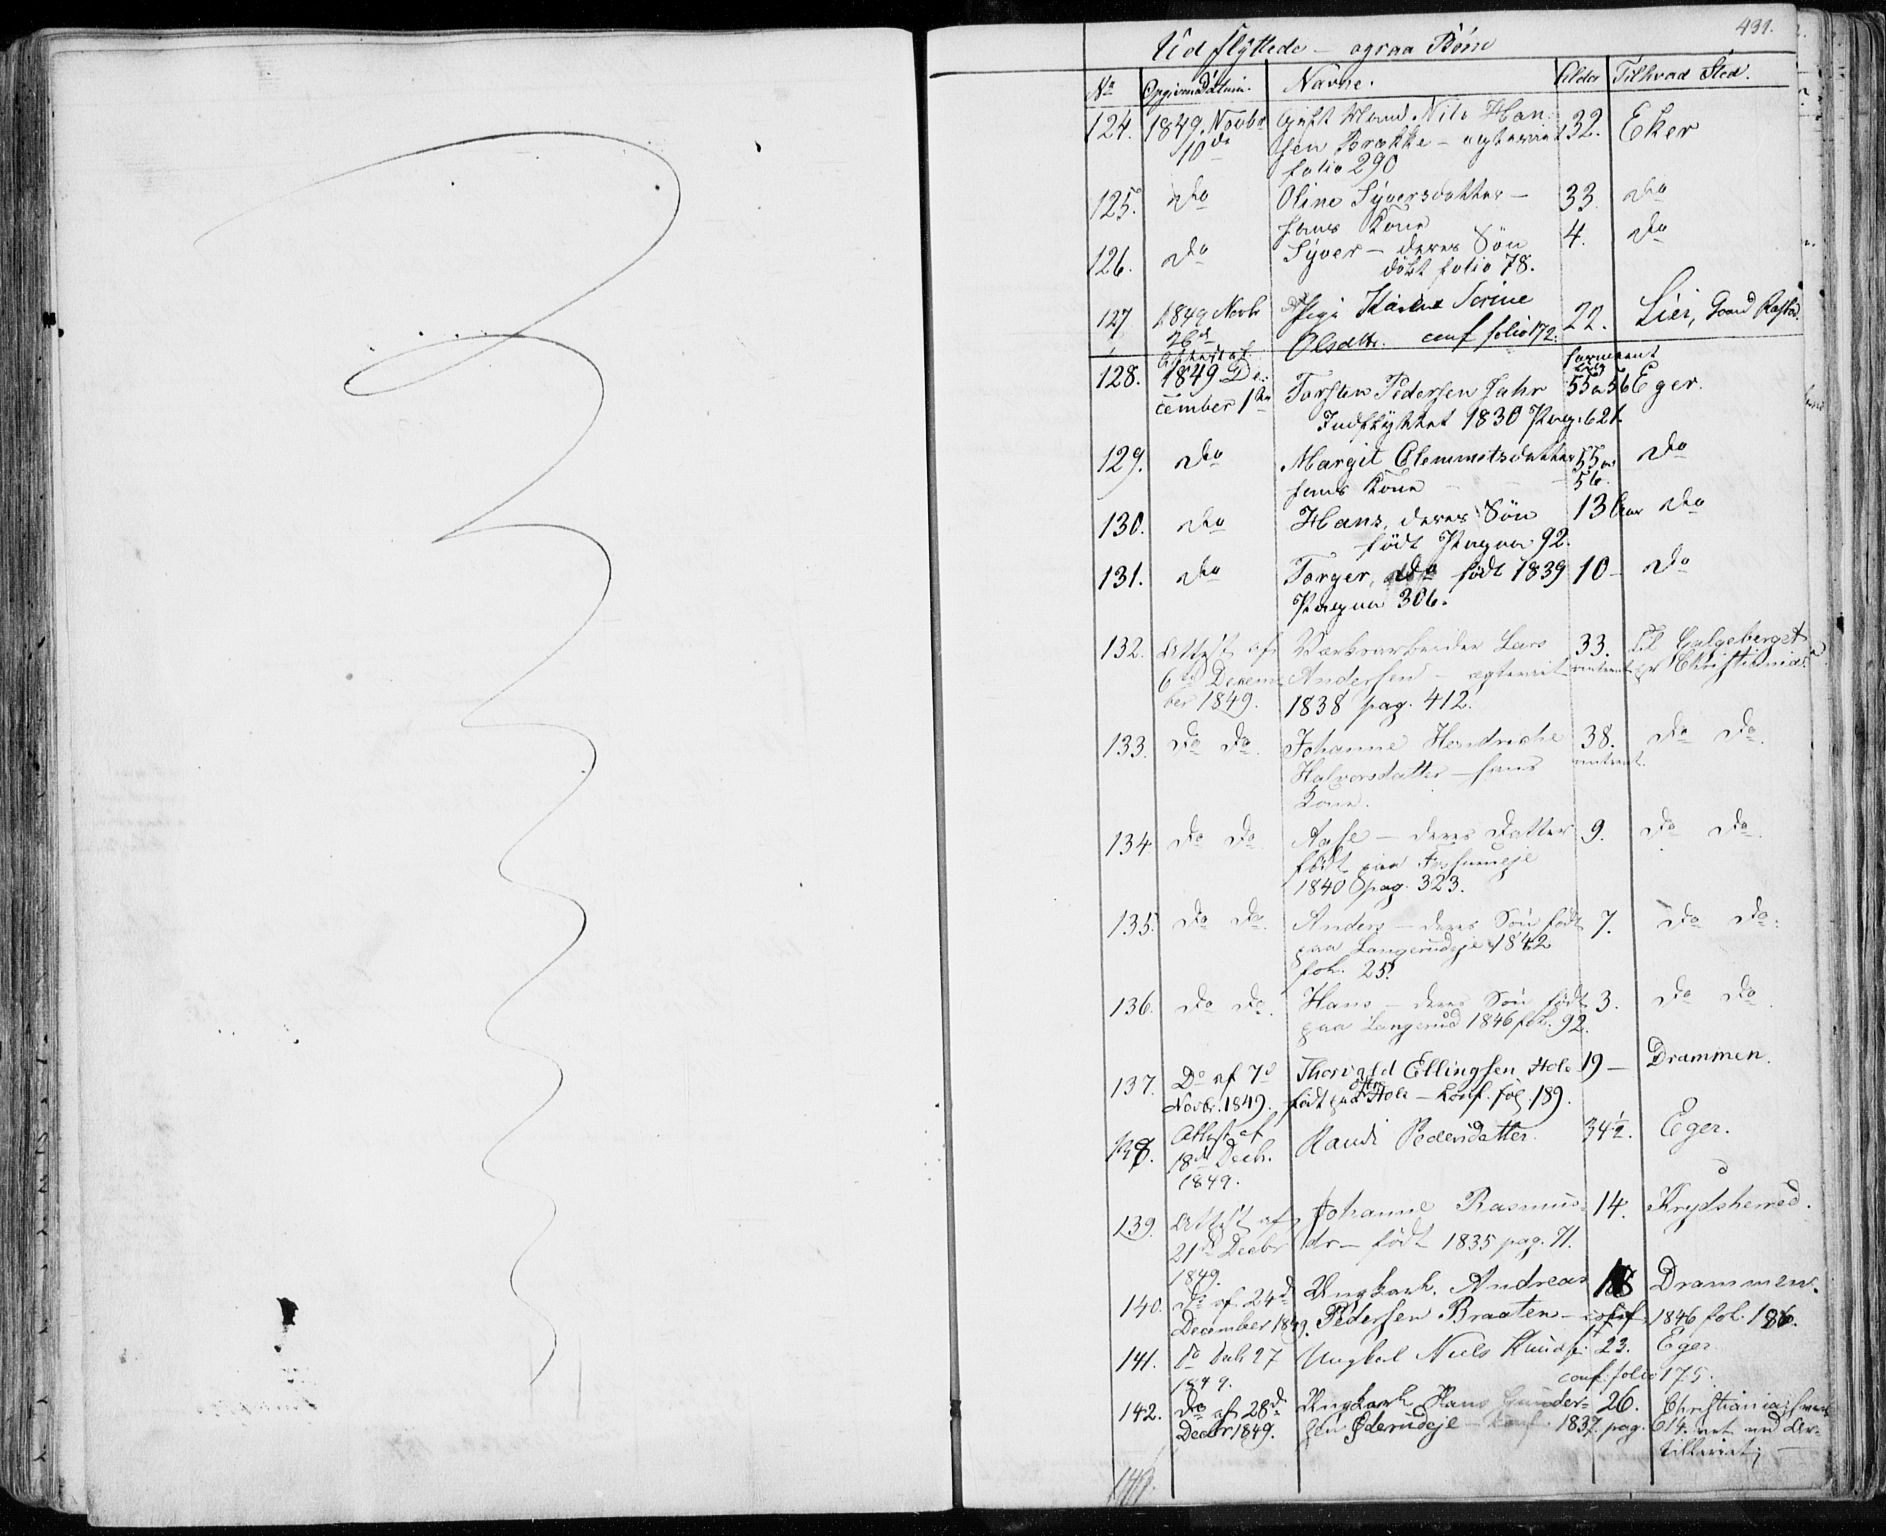 431.
Udflyttede – ogsaa Börn
No Opgivende Datum. Navne. Alder Til hvad Sted.
124. 1849. Novbr 10de Gift Mand Nils Han- 32. Eker
sen Brække – egteviet
folio 290
125. do Oline Syversdatter – 33. do
hans Kone
126. do Syver – deres Sön 4. do
döbt folio 78.
127 1849 Novbr 26d Pige Karine Serine 22. Lier, Gaard
Olsdtr. conf folio 172.
128. Attest af 1849 De- Torsten Pedersen Sahr 55 a 56 Eger.
cember 1ste Indflyttet 1830 Pag: 621.
129. do Margit Clemmetsdatter 55 a do
hans Kone – – – 56.
130. do Hans, deres Sön 13 Aar do
födt Pagna 92.
131. do Torger, do födt 1839 10 – do
Pagna 306.
132. Attest af Værksarbeider Lars 33. til Galgeberget
6te Decem- Andersen – egteviet omtrent pr Christiania.
ber 1849. 1838 pag. 412.
133. do do. Johanne Hendriche 38. do do.
Halvorsdatter – hans omtrent.
Kone.
134. do do Aase – deres Datter 9. do do.
födt paa Fossumeje
1840 pag. 323.
135. do do. Anders – deres Sön födt 7. do do.
paa Langerudeje 1842
fol. 25.
136. do do. Hans – deres Sön födt 3. do do.
paa Langerud 1846 fol. 92.
137. Do af 7d Thorvald Ellingsen Hole 19 – Drammen.
Novbr. 1849. födt paa Hole – Konf. fol. 189.
138. Attest af Randi Pedersdatter. 34½. Eger.
18de Decbr.
1849.
139. Attest af Johanne Rasmus- 14. Krydsherred.
21de Decbr dr – födt 1835 pag. 71.
1849.
140. do af 24d Ungkark. Andreas 18 Drammen.
December 1849. Pedersen Braaten – conf. 1846 fol. 186.
141. do Decb 27 Ungkal Niels Knuds: 23. Eger
1849. conf: folio 175.
142. do af 28de Ungkark Hans Gunder- 26. Christiania,
Decbr 1849. sen Öderudeje – Konf. 1837. pag. 614. ved Ar-
tilleriet;